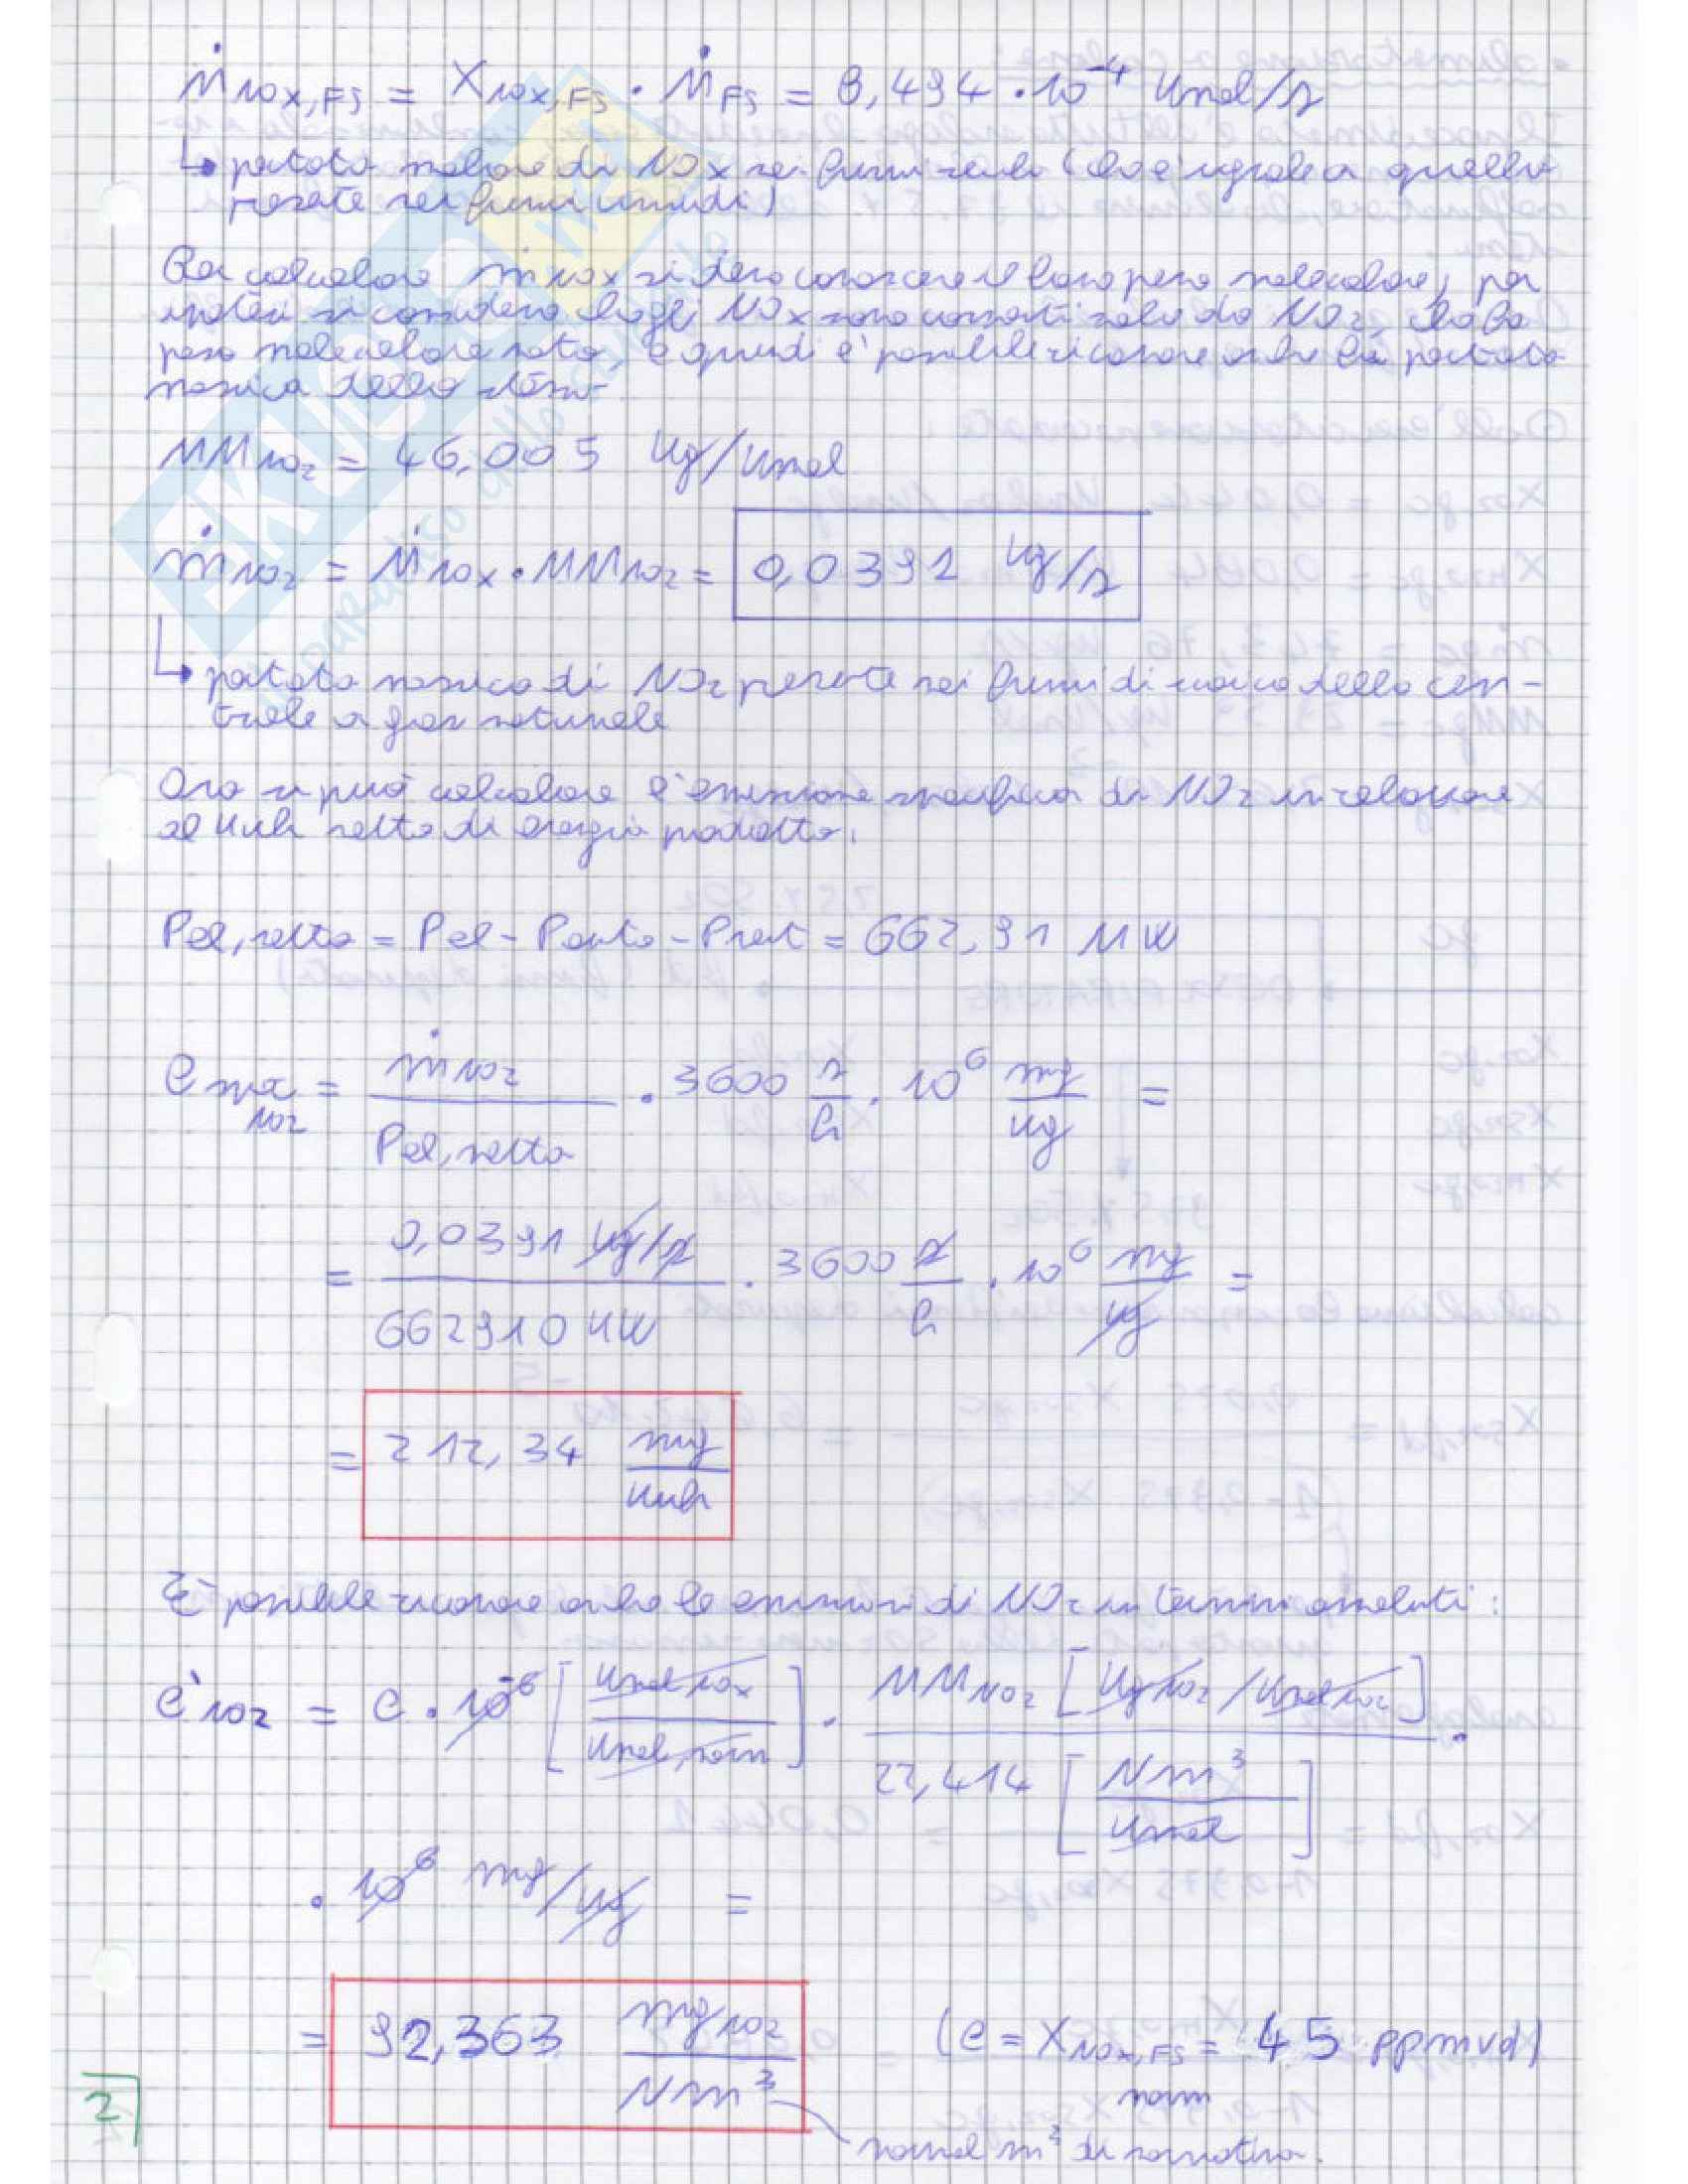 ṀNOx,FS = XNOx,FS · ṀFS = 8,494 · 10⁻⁴ kmol/s
↳ portata molare di NOx nei fumi secchi (che è uguale a quella
presente nei fumi umidi)
Per calcolare ṁNOx si deve conoscere il loro peso molecolare, per
ipotesi si considera che gli NOx sono composti solo da NO2, che ha
peso molecolare noto, e quindi è possibile ricavare anche la portata
massica dello stesso.
MMNO2 = 46,005 kg/kmol
ṁNO2 = ṀNOx · MMNO2 = 0,0391 kg/s
↳ portata massica di NO2 presente nei fumi di scarico della cen-
trale a gas naturale
Ora si può calcolare l'emissione specifica di NO2 in relazione
al kWh netto di energia prodotta:
Pel,netta = Pel - Pauto - Prest = 662,91 MW
espec NO2 = ṁNO2 / Pel,netta · 3600 s/h · 10⁶ mg/kg =
= 0,0391 kg/s / 662910 kW · 3600 s/h · 10⁶ mg/kg =
= 212,34 mg/kWh
È possibile ricavare anche le emissioni di NO2 in termini assoluti:
e'NO2 = e · 10⁻⁶ [kmol NOx / kmol,norm] · MMNO2 [kgNO2/kmolNO2] / 22,414 [Nm³/kmol] ·
· 10⁶ mg/kg =
= 92,363 mgNO2/Nm³ (e = XNOx,FS norm = 45 ppmvd)
normal m³ di normativa.
2